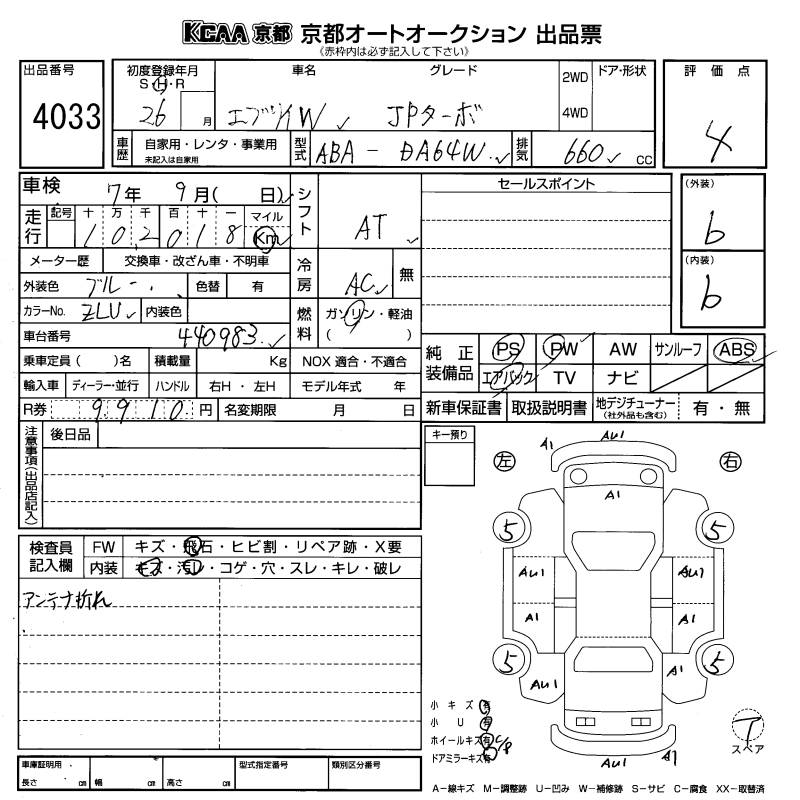 KCAA 京都 京都オートオークション 出品票
《赤枠内は必ず記入して下さい》
出品番号
4033
初度登録年月
S・H・R
26 月
車名 グレード
エブリイW JPターボ
2WD
4WD
ドア・形状
評価点
4
車歴 自家用・レンタ・事業用
未記入は自家用
型式 ABA-DA64W
排気 660 CC
車検 7年 9月( 日)
走行 記号 十 万 千 百 十 一 マイル
102018 Km
メーター歴 交換車・改ざん車・不明車
外装色 ブルー 色替 有
カラーNo. ZLU 内装色
車台番号 440983
乗車定員( )名 積載量 Kg NOX 適合・不適合
輸入車 ディーラー・並行 ハンドル 右H・左H モデル年式 年
R券 9910 円 名変期限 月 日
シフト AT
冷房 AC 無
燃料 ガソリン・軽油
( )
セールスポイント
(外装)
b
(内装)
b
純正装備品 PS PW AW サンルーフ ABS
エアバック TV ナビ
新車保証書 取扱説明書 地デジチューナー(社外品も含む) 有・無
注意事項(出品店記入)
後日品
キー預り
検査員記入欄
FW キズ・飛石・ヒビ割・リペア跡・X要
内装 キズ・汚レ・コゲ・穴・スレ・キレ・破レ
アンテナ折れ
左 右
A1 AU1
A1
5 5
AU1 AU1
A1 A1
5 5
AU1 A1
AU1 A1
小キズ 有
小U 有
ホイールキズ 有 C/P
ドアミラーキズ 有
T
スペア
車庫証明用
長さ cm 幅 cm 高さ cm
型式指定番号 類別区分番号
A-線キズ M-調整跡 U-凹み W-補修跡 S-サビ C-腐食 XX-取替済